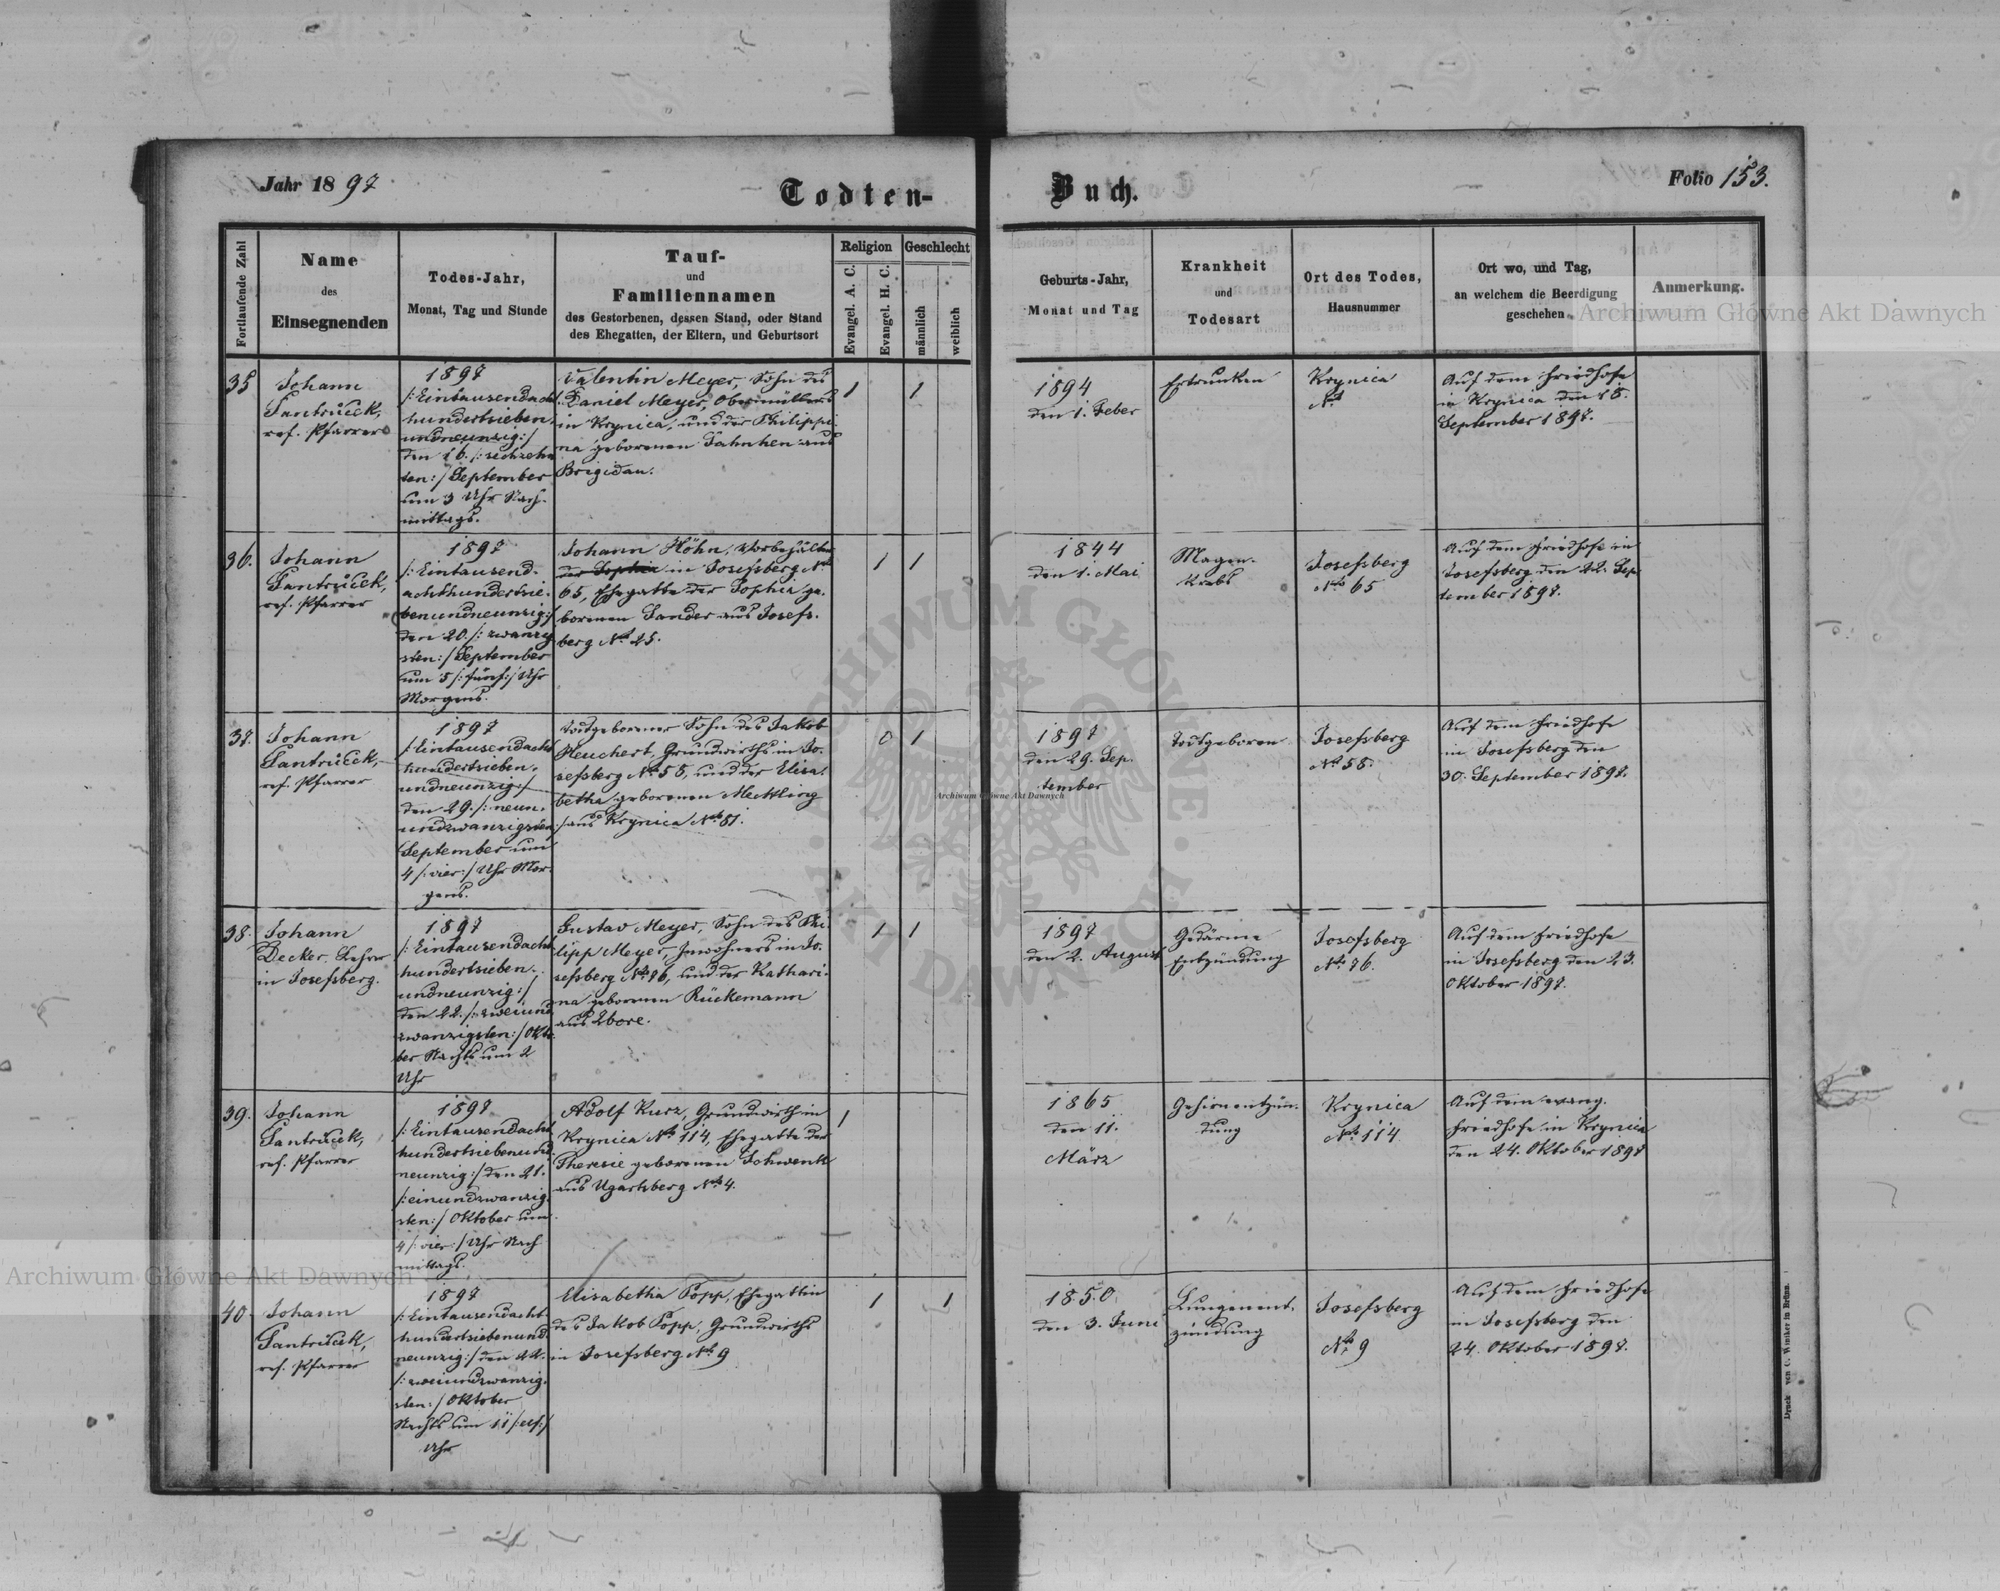 Jahr 1897
Todten-
Buch.
Folio 153.
Fortlaufende Zahl
Name
des
Einsegnenden
Todes-Jahr,
Monat, Tag und Stunde
Tauf-
und
Familiennamen
des Gestorbenen, dessen Stand, oder Stand
des Ehegatten, der Eltern, und Geburtsort
Religion
Evangel. A. C.
Evangel. H. C.
Geschlecht
männlich
weiblich
Geburts-Jahr,
Monat und Tag
Krankheit
und
Todesart
Ort des Todes,
Hausnummer
Ort wo, und Tag,
an welchem die Beerdigung
geschehen
Anmerkung.
35
Johann
ref. Pfarrer
1897
/: Eintausendacht
hundertsieben
undneunzig :/
den 16. /: sechzehn
ten :/ September
um 3 Uhr Nach-
mittags.
Valentin Meyer, Sohn des
Daniel Meyer, Obermüllers
in Krynica, und der Philippi
na geborenen Jahnken aus
Brigidau.
1
1
1894
den 1. Feber
Ertrunken
Krynica
No
Auf dem Friedhofe
in Krynica den 18.
September 1897.
36.
Johann
ref. Pfarrer
1897
/: Eintausend-
achthundertsie-
benundneunzig :/
den 20. /: zwanzig
sten :/ September
um 5 /: fünf :/ Uhr
Morgens.
Johann Höhn,
der Sophia in Josefsberg No
65, Ehegatte der Sophia ge-
borenen Sander aus Josefs-
berg No 25.
1
1
1844
den 1. Mai
Magen-
krebs
Josefsberg
No 65
Auf dem Friedhofe in
Josefsberg den 22. Sep
tember 1897.
37.
Johann
ref. Pfarrer
1897
/: Eintausendacht
hundertsieben-
undneunzig :/
den 29. /: neun-
undzwanzigsten :/
September um
4 /: vier :/ Uhr Mor-
gens.
Todtgeborener Sohn des Jakob
Heuchert, Grundwirths in Jo-
sefsberg No 58, und der Elisa-
betha geborenen Mettling
aus Krynica No 81.
0
1
1897
den 29. Sep-
tember
Todtgeboren
Josefsberg
No 58.
Auf dem Friedhofe
in Josefsberg den
30. September 1897.
38.
Johann
Decker, Lehrer
in Josefsberg.
1897
/: Eintausendacht
hundertsieben-
undneunzig :/
den 22. /: zweiund
zwanzigsten :/ Okto
ber Nachts um 2
Uhr
Gustav Meyer, Sohn des Phi-
lipp Meyer, Inwohners in Jo-
sefsberg No 76, und der Kathari-
na geborenen Rückemann
aus Ugartsberg
1
1
1897
den 2. August
Gedärme
Entzündung
Josefsberg
No 76.
Auf dem Friedhofe
in Josefsberg den 23.
Oktober 1897.
39.
Johann
ref. Pfarrer
1897
/: Eintausendacht
hundertsiebenund
neunzig :/ den 21.
/: einundzwanzig-
sten :/ Oktober um
4 /: vier :/ Uhr Nach
mittags.
Adolf Kurz, Grundwirth in
Krynica No 114, Ehegatte der
Theresie geborenen Schwenk
aus Ugartsberg No 4.
1
1865
den 11.
März
Gehirnentzün-
dung
Krynica
No 114
Auf dem evang.
Friedhofe in Krynica
den 24. Oktober 1897
40.
Johann
ref. Pfarrer
1897
/: Eintausendacht
hundertsiebenund
neunzig :/ den 22.
/: zweiundzwanzig-
sten :/ Oktober
Nachts um 11 /: elf :/
Uhr
Elisabetha Popp, Ehegattin
des Jakob Popp, Grundwirths
in Josefsberg No 9
1
1
1850
den 3. Juni
Lungenent-
zündung
Josefsberg
No 9
Auf dem Friedhofe
in Josefsberg den
24. Oktober 1897.
Archiwum Główne Akt Dawnych
Archiwum Główne Akt Dawnych
Archiwum Główne Akt Dawnych
ARCHIWUM GŁÓWNE
AKT DAWNYCH